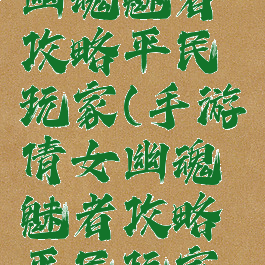 幽魂魅者
攻略平民
玩家(手游
倩女幽魂
魅者攻略
平民玩家